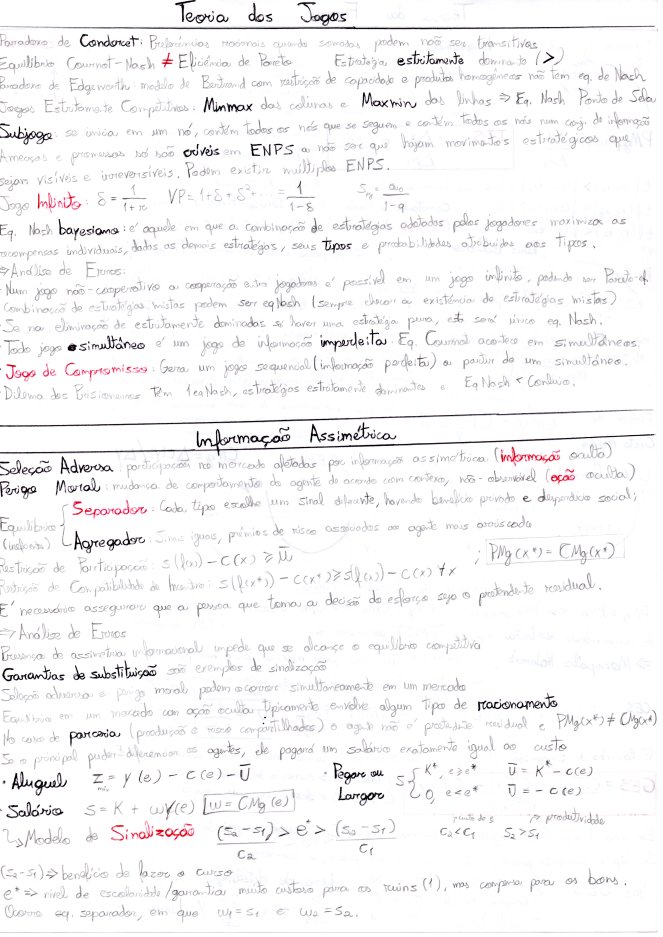 Teoria dos Jogos
Paradoxo de Condorcet: Preferências racionais quando somadas podem não ser transitivas
Equilíbrio Cournot-Nash ≠ Eficiência de Pareto Estratégia estritamente dominante (>)
Paradoxo de Edgeworth: modelo de Bertrand com restrição de capacidade e produtos homogêneos não tem eq. de Nash
Jogos Estritamente Competitivos: Minmax das colunas e Maxmin das linhas ⇒ Eq. Nash Ponto de Sela
Subjogo: se inicia em um nó, contém todos os nós que se seguem e contém todos os nós num conj. de informação
Ameaças e promessas só não críveis em ENPS a não ser que hajam movimentos estratégicos que
sejam visíveis e irreversíveis. Podem existir múltiplos ENPS.
Jogo Infinito: δ = 1/(1+r) VP = 1+δ+δ²+... = 1/(1-δ) = a₀/(1-q)
Eq. Nash bayesiano: é aquele em que a combinação de estratégias adotadas pelos jogadores maximiza as
recompensas individuais, dadas as demais estratégias, seus tipos e probabilidades atribuídas aos tipos.
⇒ Análise de Erros:
· Num jogo não-cooperativo a cooperação entre jogadores é possível em um jogo infinito, podendo ser Pareto-ef
· Combinação de estratégias mistas podem ser eq Nash (sempre checar a existência de estratégias mistas)
· Se na eliminação de estritamente dominadas só haver uma estratégia pura, esta será único eq. Nash.
· Todo jogo simultâneo é um jogo de informação imperfeita. Eq. Cournot acontece em simultâneos.
· Jogo de Compromisso: Gera um jogo sequencial (informação perfeita) a partir de um simultâneo.
· Dilema dos Prisioneiros têm 1 eq Nash, estratégias estritamente dominantes e Eq Nash < Conluio.
Informação Assimétrica
Seleção Adversa participação no mercado afetadas por informação assimétrica (informação oculta)
Perigo Moral: mudança de comportamento do agente de acordo com contexto, não-observável (ação oculta)
Separador: Cada tipo escolhe um sinal diferente, havendo benefício privado e desperdício social;
Equilíbrio
Agregador: Sinais iguais, prêmios de risco associados ao agente mais arriscado
Restrição de Participação: s(f(x)) - c(x) ≥ ū ; PMg(x*) = CMg(x*)
Restrição de Compatibilidade de Incentivo: s(f(x*)) - c(x*) ≥ s(f(x)) - c(x) ∀x
É necessário assegurar que a pessoa que toma a decisão do esforço seja o pretendente residual.
⇒ Análise de Erros
Presença de assimetria informacional impede que se alcance o equilíbrio competitivo
Garantias de substituição são exemplos de sinalização
Seleção adversa e perigo moral podem ocorrer simultaneamente em um mercado
Equilíbrio em um mercado com ação oculta tipicamente envolve algum tipo de racionamento
No caso de parceria (produção e risco compartilhados) o agente não é pretendente residual e PMg(x*) ≠ CMg(x*)
Se o principal puder diferenciar os agentes, ele pagará um salário exatamente igual ao custo
· Aluguel z = y(e) - c(e) - Ū · Pegar ou Largar s { K*, e≥e* Ū = K* - c(e)
0, e<e* Ū = -c(e)
· Salário S = K + wy(e) w = CMg(e)
↳ Modelo de Sinalização (s₂-s₁)/c₂ > e* > (s₂-s₁)/c₁ c₂<c₁ s₂>s₁ produtividade
(s₂-s₁) ⇒ benefício de fazer o curso
e* ⇒ nível de escolaridade/garantia muito custoso para os ruins (1), mas compensa para os bons.
Ocorre eq. separador, em que w₁ = s₁ e w₂ = s₂.